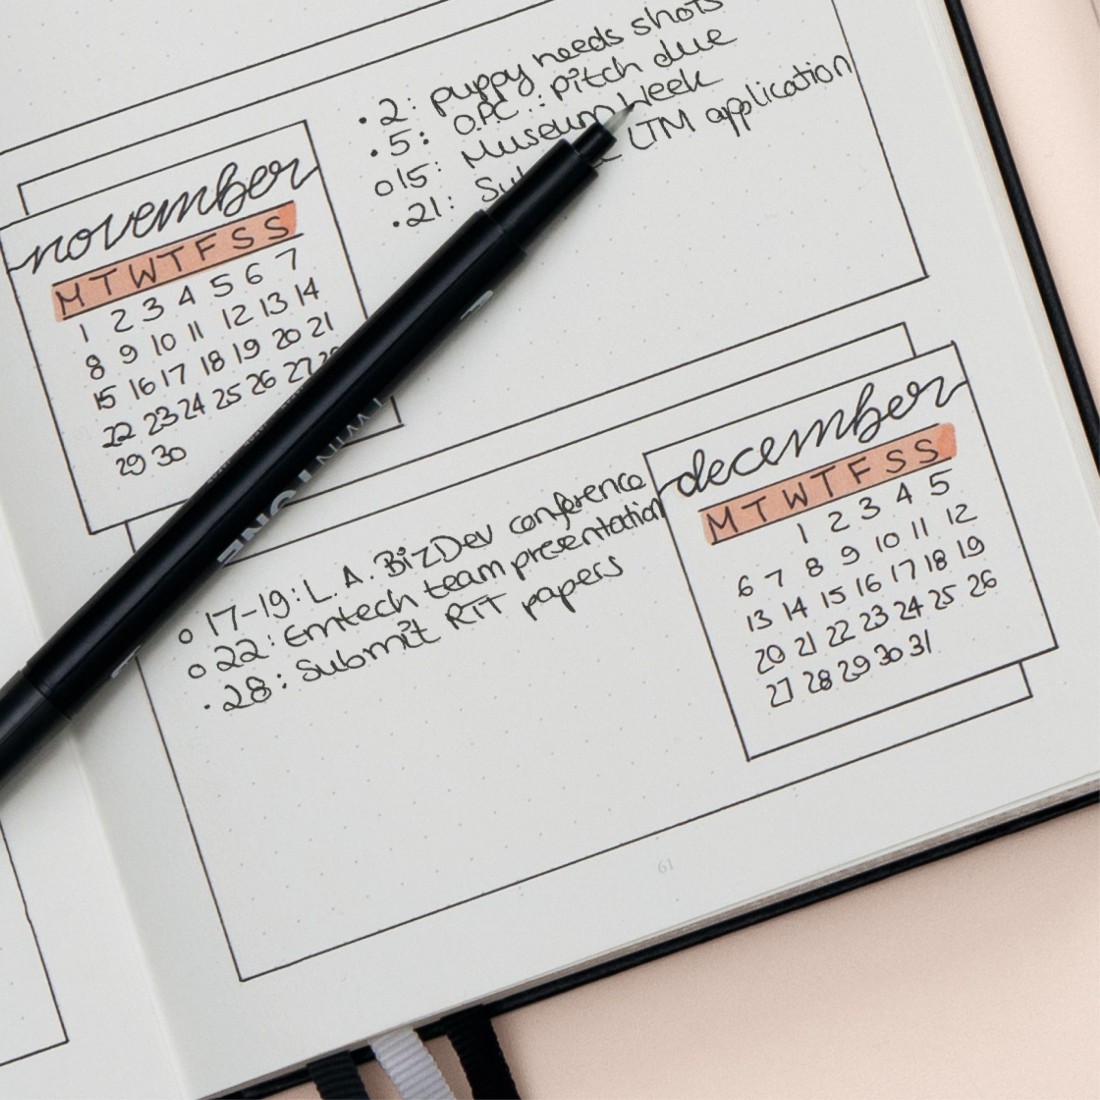 .2: puppy needs shots
.5: OPC: pitch due
o15: Museum Week
.21: LTM application
november
M T W T F S S
1 2 3 4 5 6 7
8 9 10 11 12 13 14
15 16 17 18 19 20 21
22 23 24 25 26 27 28
29 30
december
M T W T F S S
1 2 3 4 5
6 7 8 9 10 11 12
13 14 15 16 17 18 19
20 21 22 23 24 25 26
27 28 29 30 31
o 17-19: L.A. BizDev conference
o 22: Emtech team presentation
.28: Submit RTT papers
61